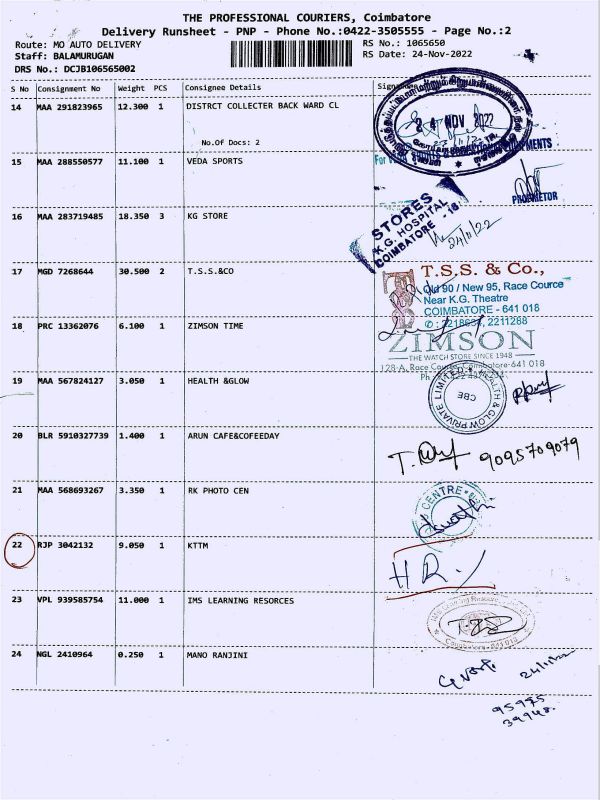 THE PROFESSIONAL COURIERS, Coimbatore
Delivery Runsheet - PNP - Phone No.:0422-3505555 - Page No.:2
Route: MO AUTO DELIVERY
RS No.: 1065650
Staff: BALAMURUGAN
RS Date: 24-Nov-2022
DRS No.: DCJB106565002
S No Consignment No Weight PCS Consignee Details
14 MAA 291823965 12.300 1 DISTRCT COLLECTER BACK WARD CL
No.Of Docs: 2
24 NOV 2022
15 MAA 288550577 11.100 1 VEDA SPORTS
PROPRIETOR
16 MAA 283719485 18.350 3 KG STORE
STORES
K.G. HOSPITAL
COIMBATORE - 18
24/11/22
17 MGD 7268644 30.500 2 T.S.S.&CO
T.S.S. & Co.,
Old 90 / New 95, Race Cource
Near K.G. Theatre
COIMBATORE - 641 018
2211288
18 PRC 13362076 6.100 1 ZIMSON TIME
ZIMSON
THE WATCH STORE SINCE 1948
128-A, Race Course, Coimbatore-641 018
19 MAA 567824127 3.050 1 HEALTH &GLOW
HEALTH & GLOW PRIVATE LIMITED
CBE
20 BLR 5910327739 1.400 1 ARUN CAFE&COFEEDAY
9095709079
21 MAA 568693267 3.350 1 RK PHOTO CEN
CENTRE
22 RJP 3042132 9.050 1 KTTM
23 VPL 939585754 11.000 1 IMS LEARNING RESORCES
24 NGL 2410964 0.250 1 MANO RANJINI